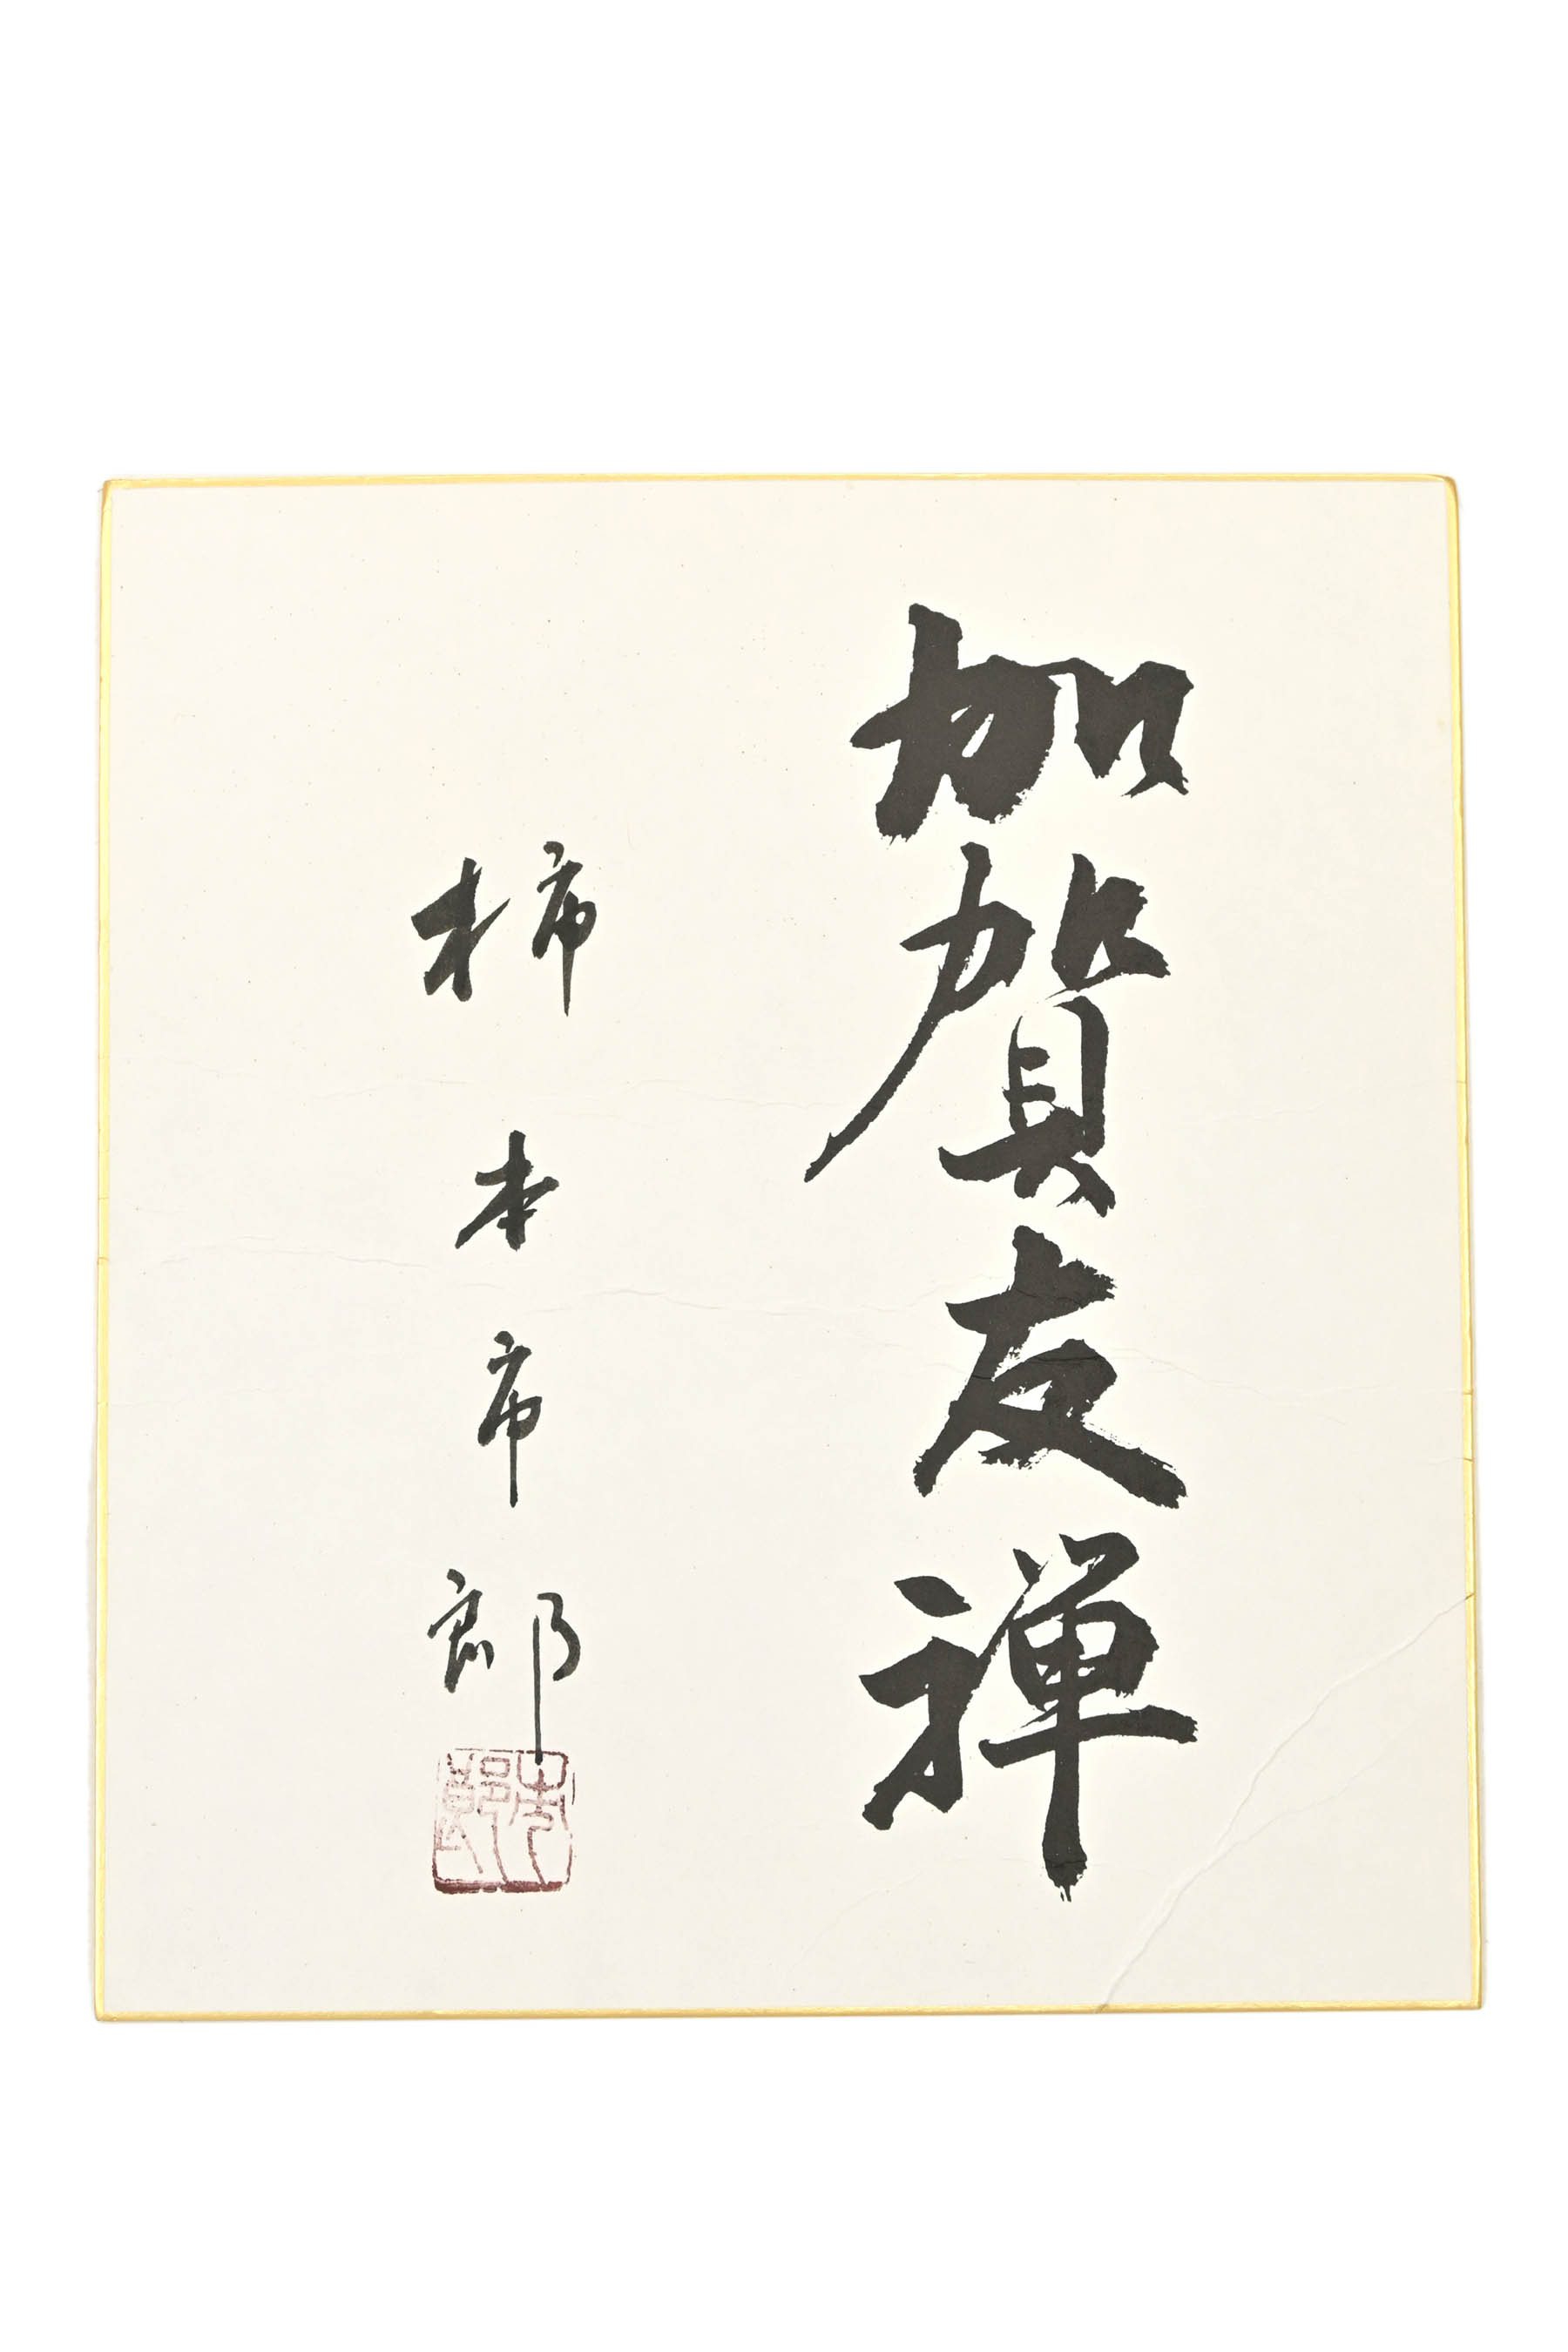 加賀友禅
柿本市郎